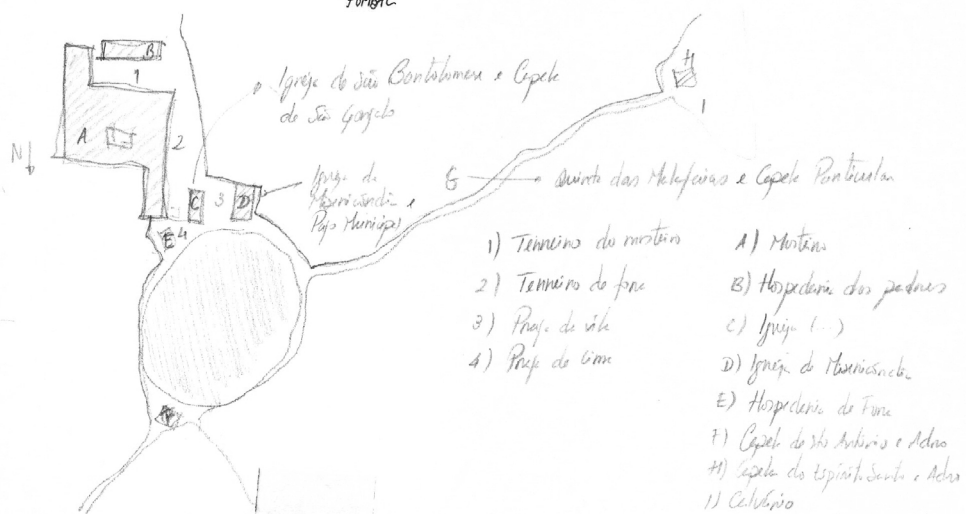 B
1
A
2
N
Igreja de São Bartolomeu e Capela
de São Gonçalo
Igreja da
Misericórdia e
Paço Municipal
C
3
D
E
4
H
G
Quinta das e Capela Particular
1) Terreiro do mosteiro
2) Terreiro de fora
3) Praça da vila
4) Praça de cima
A) Mosteiro
B) Hospedaria dos padres
C) Igreja (...)
D) Igreja da Misericórdia
E) Hospedaria de Fora
F) Capela de Sto António e Adro
H) Capela do Espírito Santo e Adro
I) Calvário